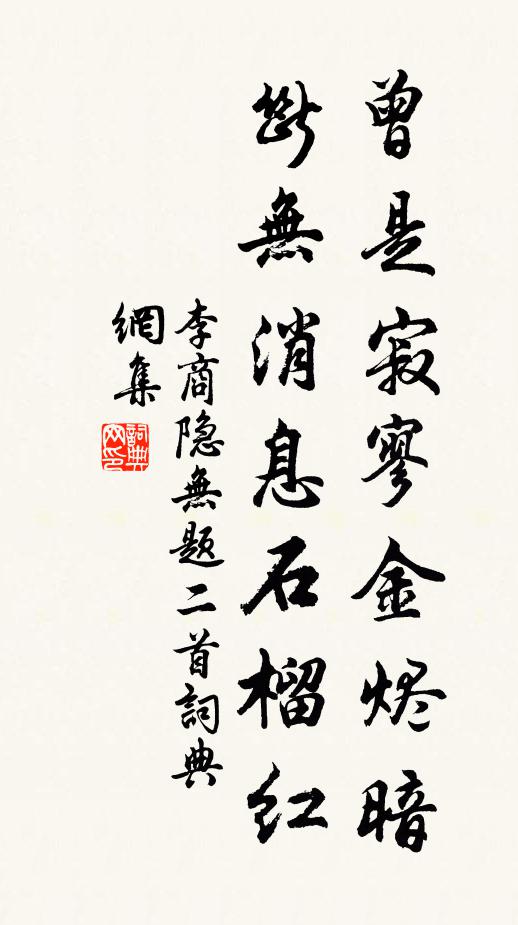 曾是寂寥金烬暗
斷無消息石榴红
李商隐無題二首詞典
網集
詞典
网印